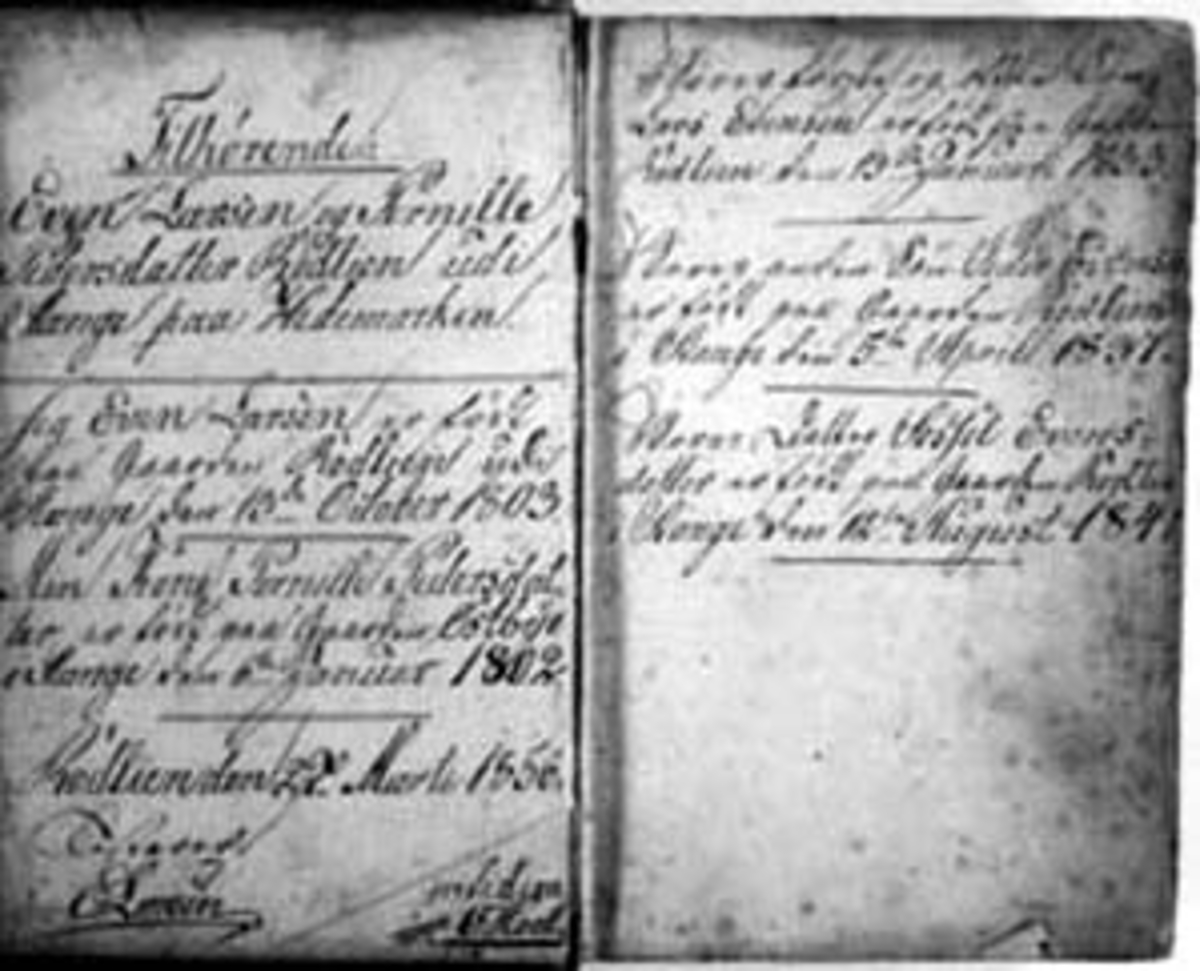 Tilhørende
Even Larsen og Pernille
Pedersdatter Rødlien udi
Stange paa Hedemarken.
Jeg Even Larsen er født
paa Gaarden Rødlien udi
Stange den 13de October 1803
Min Kone Pernille Pedersdat-
ter er født paa Gaarden
Stange den 6te Januar 1802
Rødlien den Marti 1856.
Larsen
Vores første og
Lars Evensen er født paa
Rødlien den 13de Januari
Vores anden Søn Peder Evensen
er født paa Gaarden Rødlien
i Stange den 5te April 1837.
Vores Datter Evens-
datter er født paa Gaarden Rødlien
i Stange den 12te August